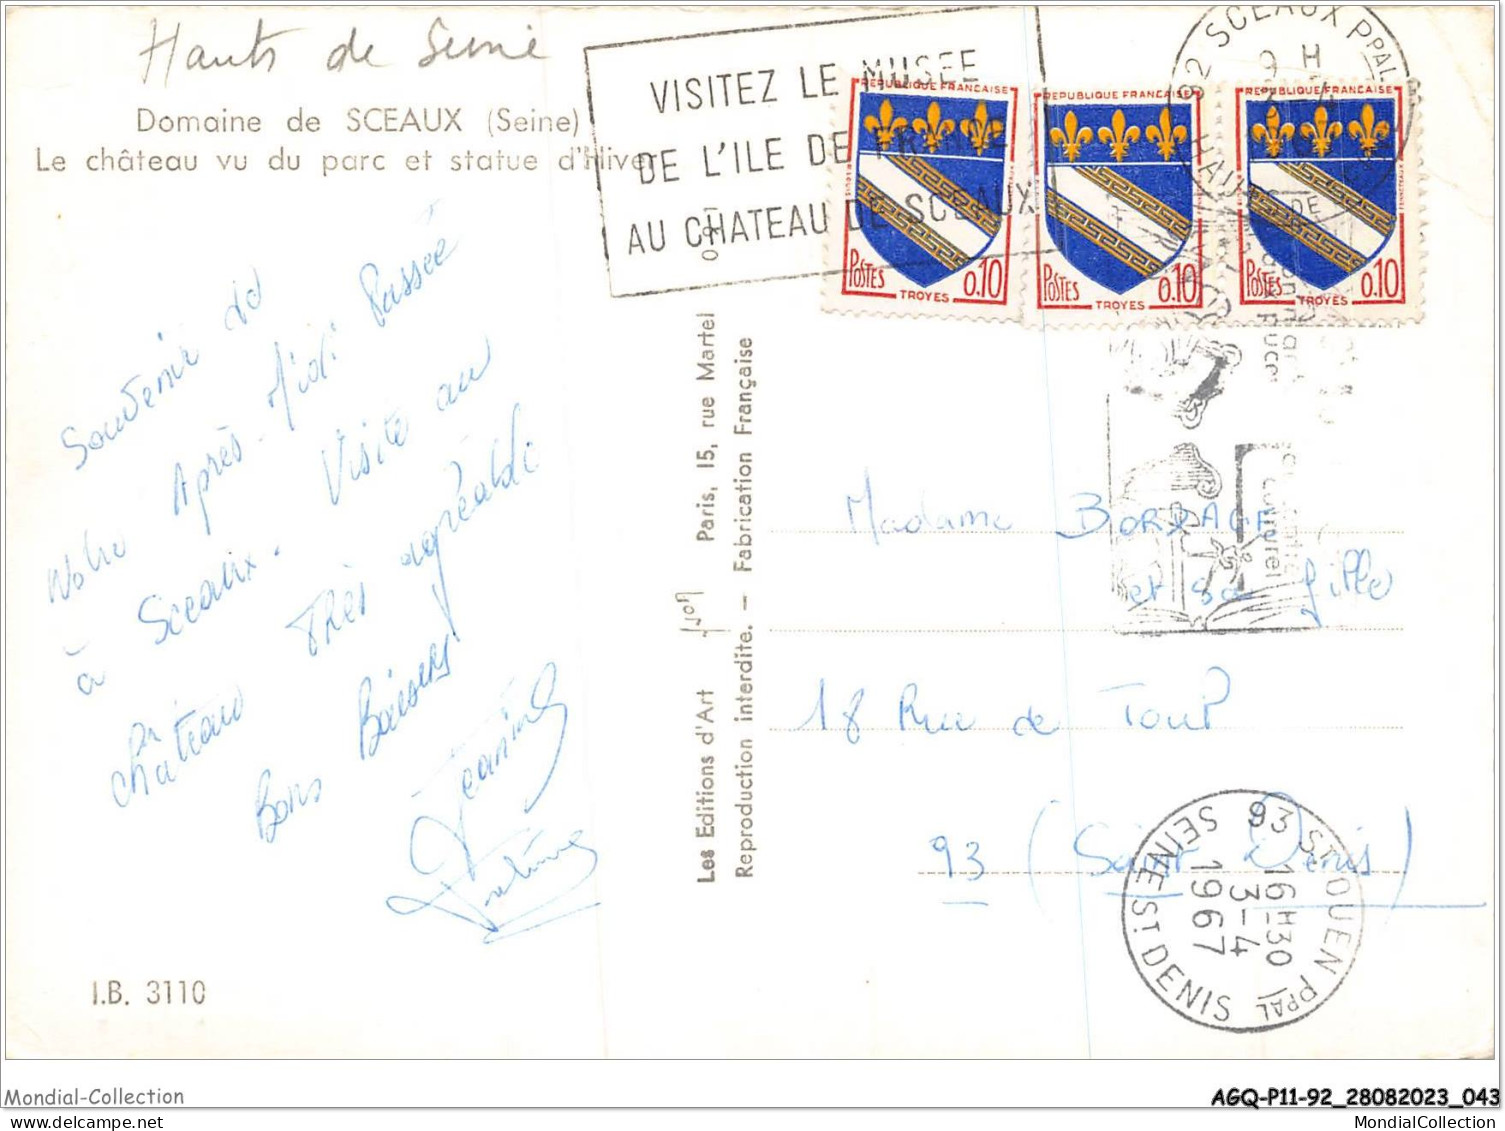 Hauts de Seine
Domaine de SCEAUX (Seine)
Le château vu du parc et statue d'Hiver
VISITEZ LE MUSEE
DE L'ILE DE FRANCE
AU CHATEAU DE SCEAUX
92 SCEAUX PPAL
9 H
3-4
REPUBLIQUE FRANÇAISE
POSTES 0.10
TROYES
REPUBLIQUE FRANÇAISE
POSTES 0.10
TROYES
REPUBLIQUE FRANÇAISE
POSTES 0.10
TROYES
Souvenir de
Notre Après-Midi Passée
à Sceaux. Visite au
château Très agréable
Bons Baisers
Jeanine
I.B. 3110
Les Editions d'Art Paris, 15, rue Martel
Reproduction interdite. — Fabrication Française
Madame BORDAGE
et sa fille
18 Rue de
93 (Saint Denis)
93 ST OUEN PPAL
16H30
3-4
1967
SEINE ST DENIS
Mondial-Collection
AGQ-P11-92_28082023_043
MondialCollection